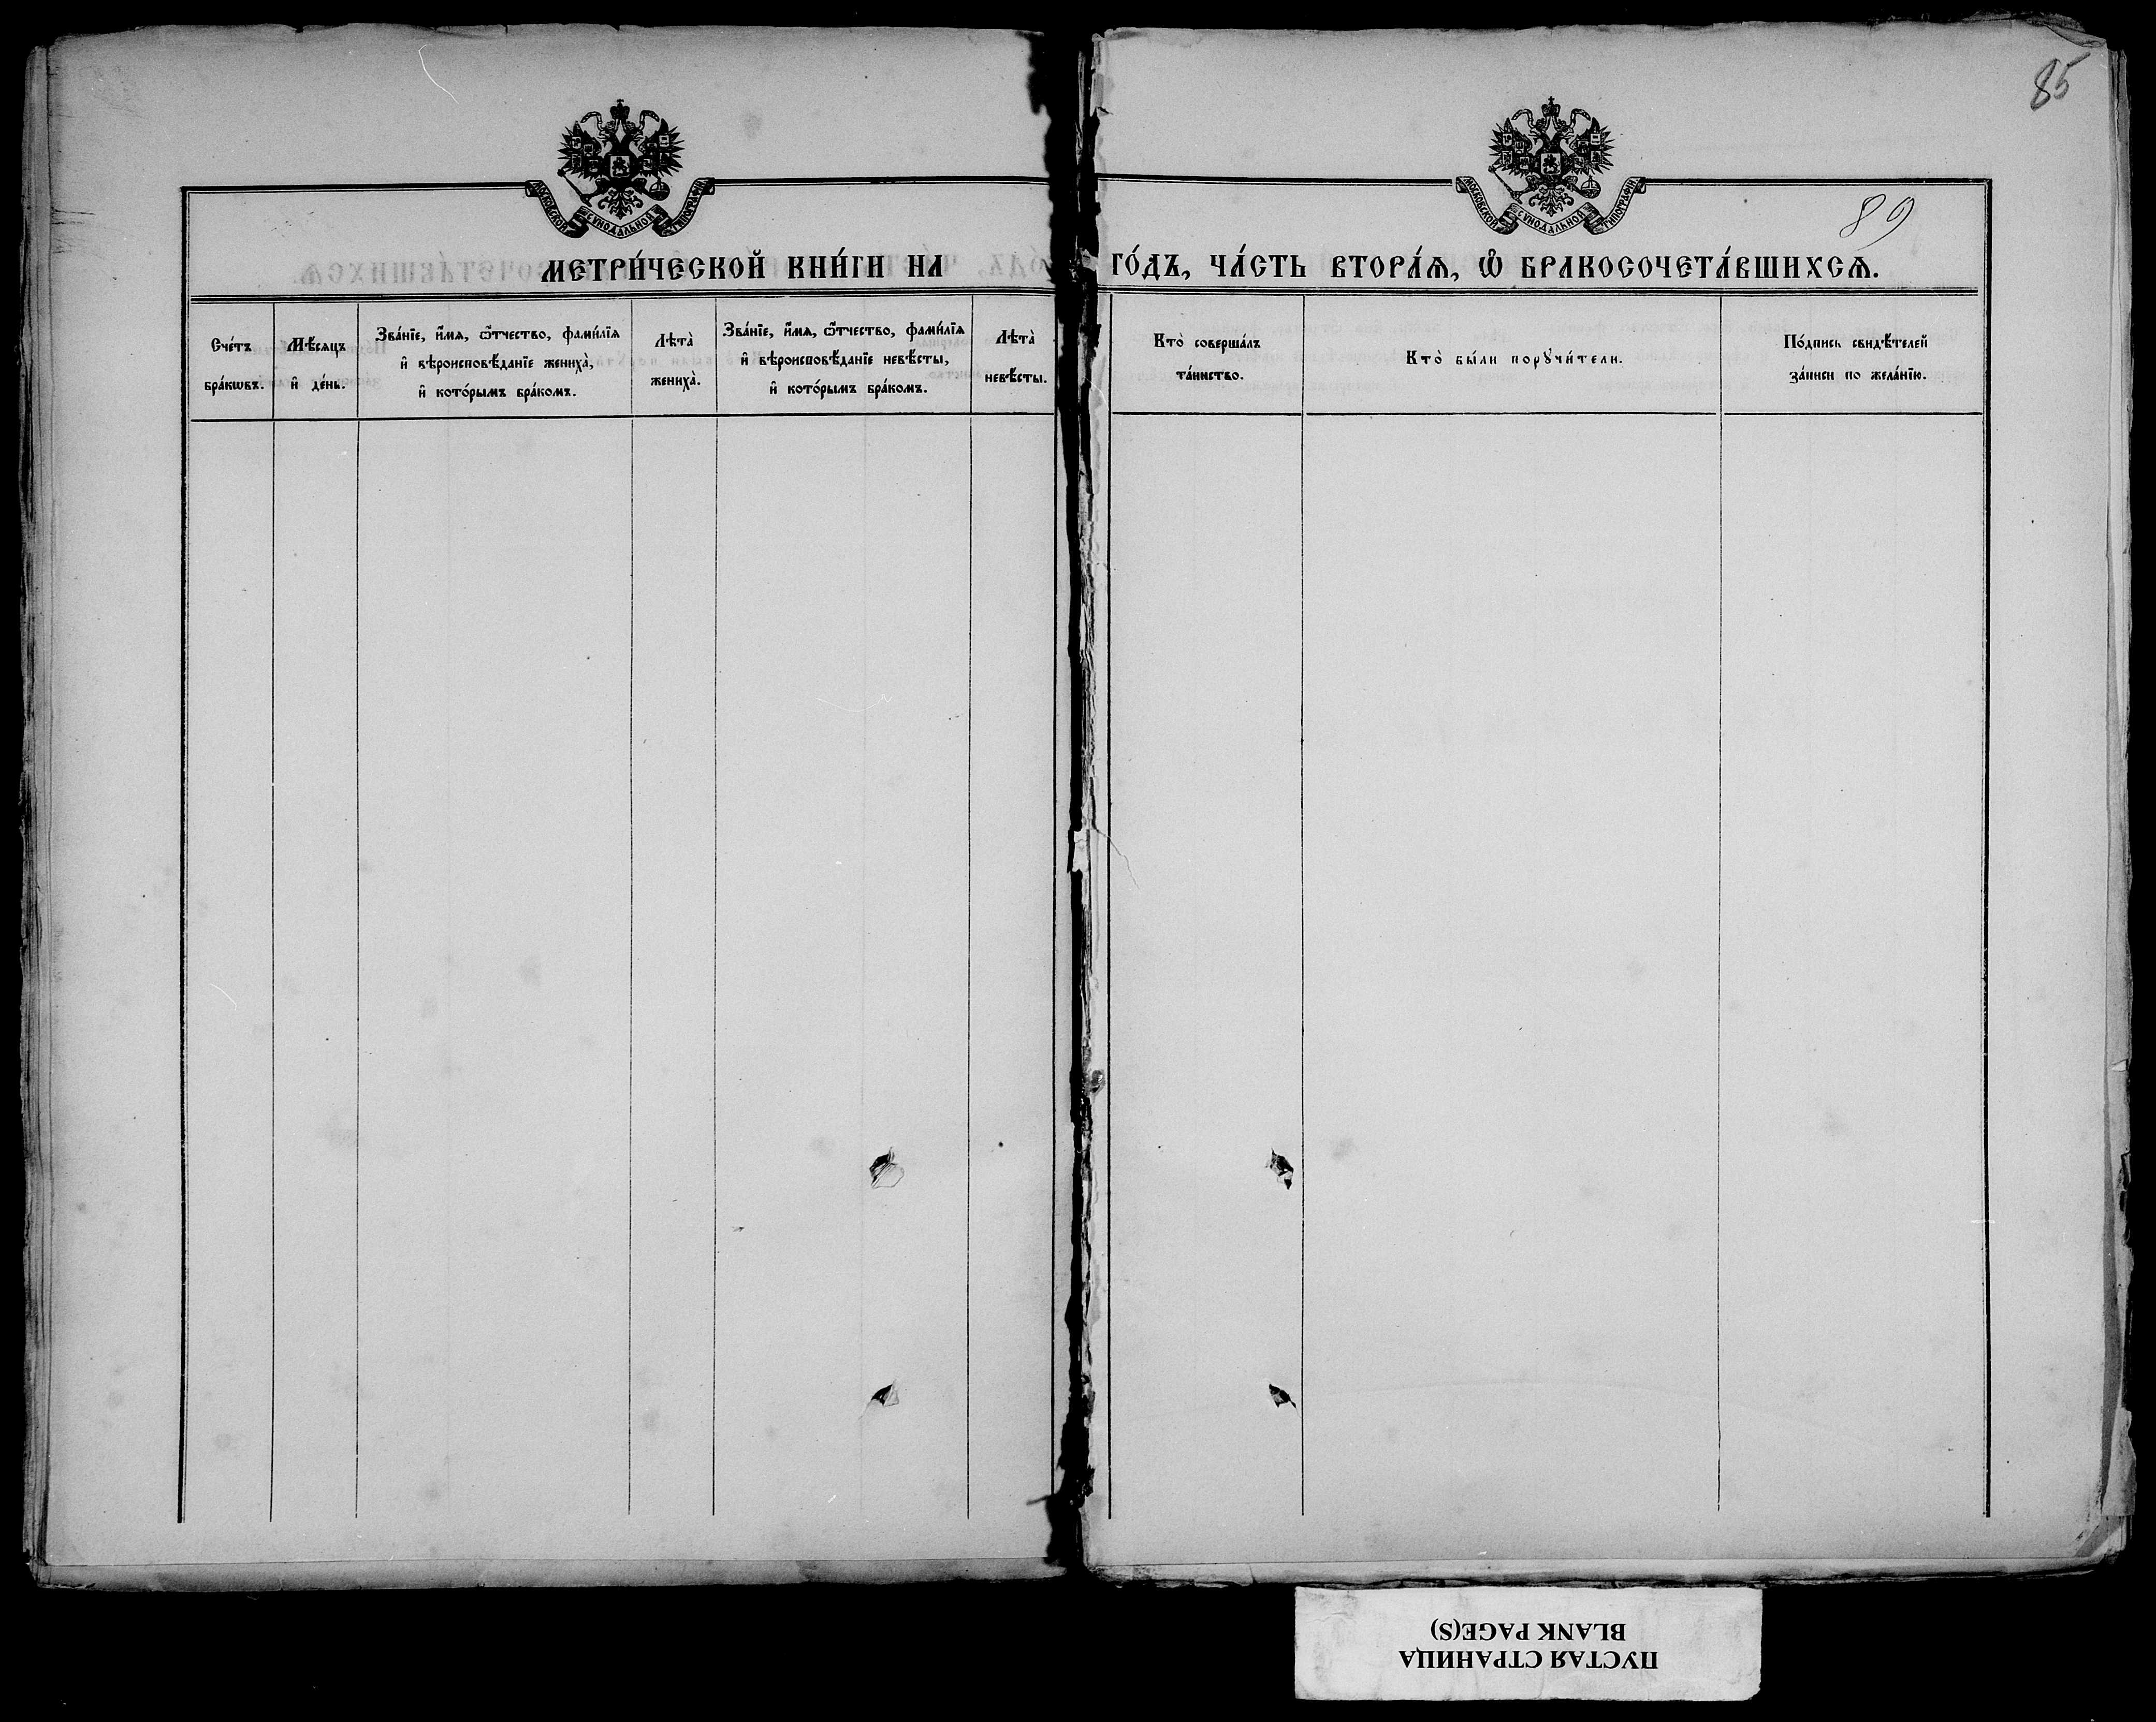 85
МОСКОВСКОЙ СѴНОДАЛЬНОЙ ТИПОГРАФІИ
МОСКОВСКОЙ СѴНОДАЛЬНОЙ ТИПОГРАФІИ
89
МЕТРИ́ЧЕСКОЙ КНИ́ГИ НА ГО́ДЪ, ЧА́СТЬ ВТОРА́Ѧ, Ѽ БРАКОСОЧЕТА́ВШИХСѦ.
Сче́тъ
бра́кѡвъ.
Мѣ́сѧцъ
и҆ де́нь.
Зва́нїе, и҆́мѧ, ѻ҆́тчество, фами́лїѧ
и҆ вѣроисповѣ́данїе жениха̀,
и҆ кото́рымъ бра́комъ.
Лѣта̀
жениха̀.
Зва́нїе, и҆́мѧ, ѻ҆́тчество, фами́лїѧ
и҆ вѣроисповѣ́данїе невѣ́сты,
и҆ кото́рымъ бра́комъ.
Лѣта̀
невѣ́сты.
Кто̀ соверша́лъ
та́инство.
Кто̀ бы́ли порꙋчи́тели.
По́дпись свидѣ́телей
за́писи по жела́нїю.
ПУСТАЯ СТРАНИЦА
BLANK PAGE(S)